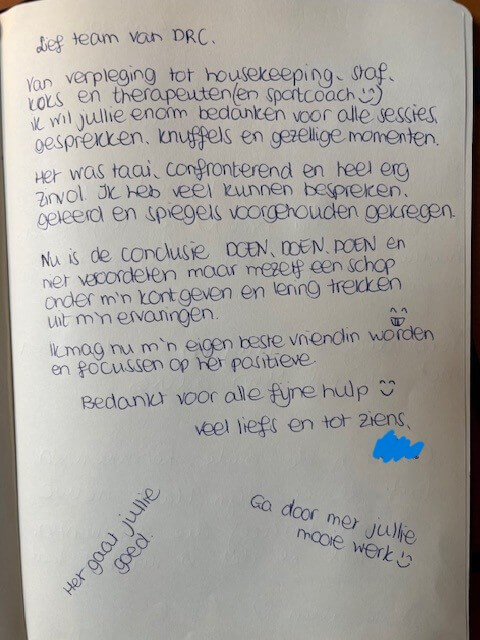 Lief team van DRC.
Van verpleging tot housekeeping, staf,
koks en therapeuten (en sportcoach ☺)
ik wil jullie enorm bedanken voor alle sessies,
gesprekken, knuffels en gezellige momenten.
Het was taai, confronterend en heel erg
zinvol. Ik heb veel kunnen bespreken,
geleerd en spiegels voorgehouden gekregen.
Nu is de conclusie DOEN, DOEN, DOEN en
niet veroordelen maar mezelf een schop
onder m'n kont geven en lering trekken
uit m'n ervaringen.
Ik mag nu m'n eigen beste vriendin worden
en focussen op het positieve.
Bedankt voor alle fijne hulp ☺
veel liefs en tot ziens,
Het gaat jullie
goed.
Ga door met jullie
mooie werk ☺